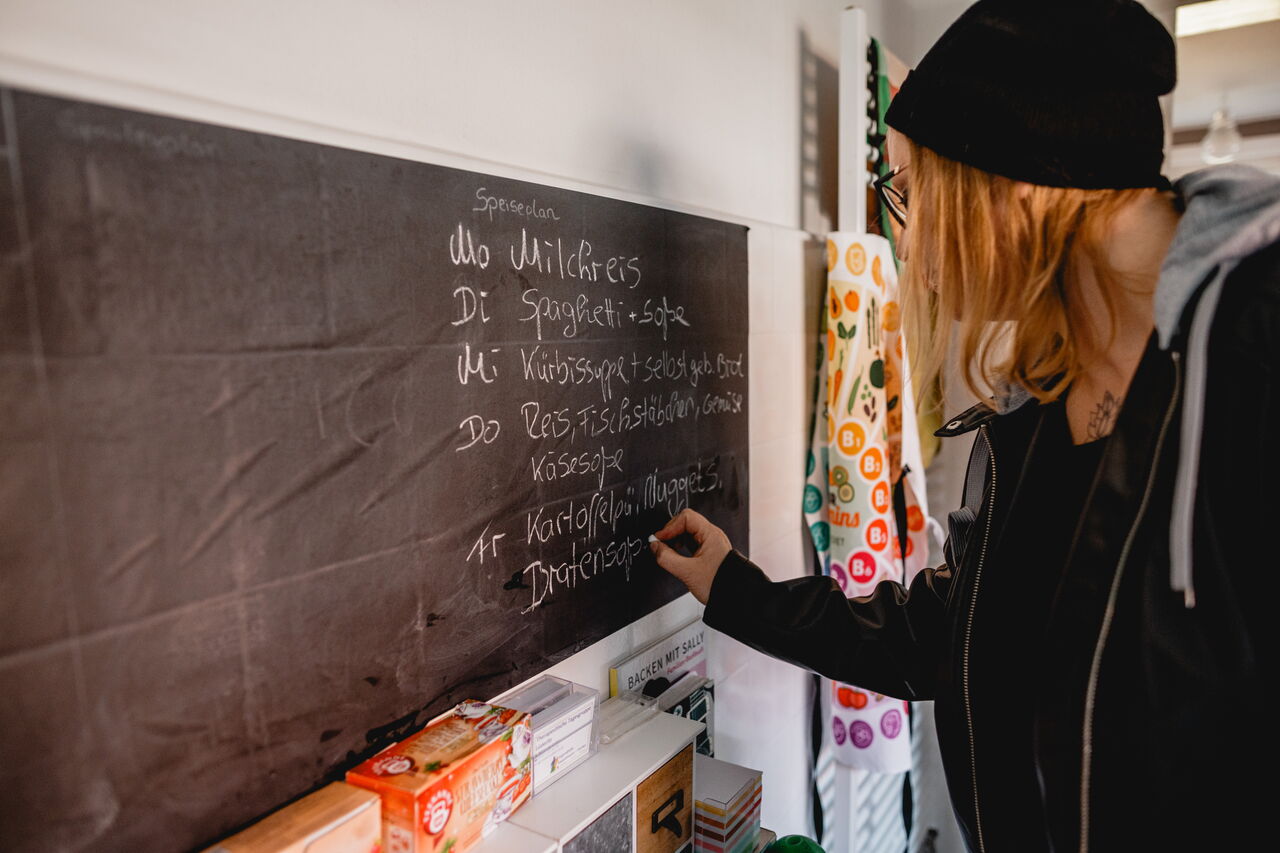 Speiseplan
Mo Milchreis
Di Spaghetti + Soße
Mi Kürbissuppe + selbstgeb. Brot
Do Reis, Fischstäbchen, Gemüse
Käsesoße
Fr Kartoffelpü, Nuggets,
Bratensoß
B1
B2
B6
BACKEN MIT SALLY
TEEKANNE
Therapeutische Tagesgruppe